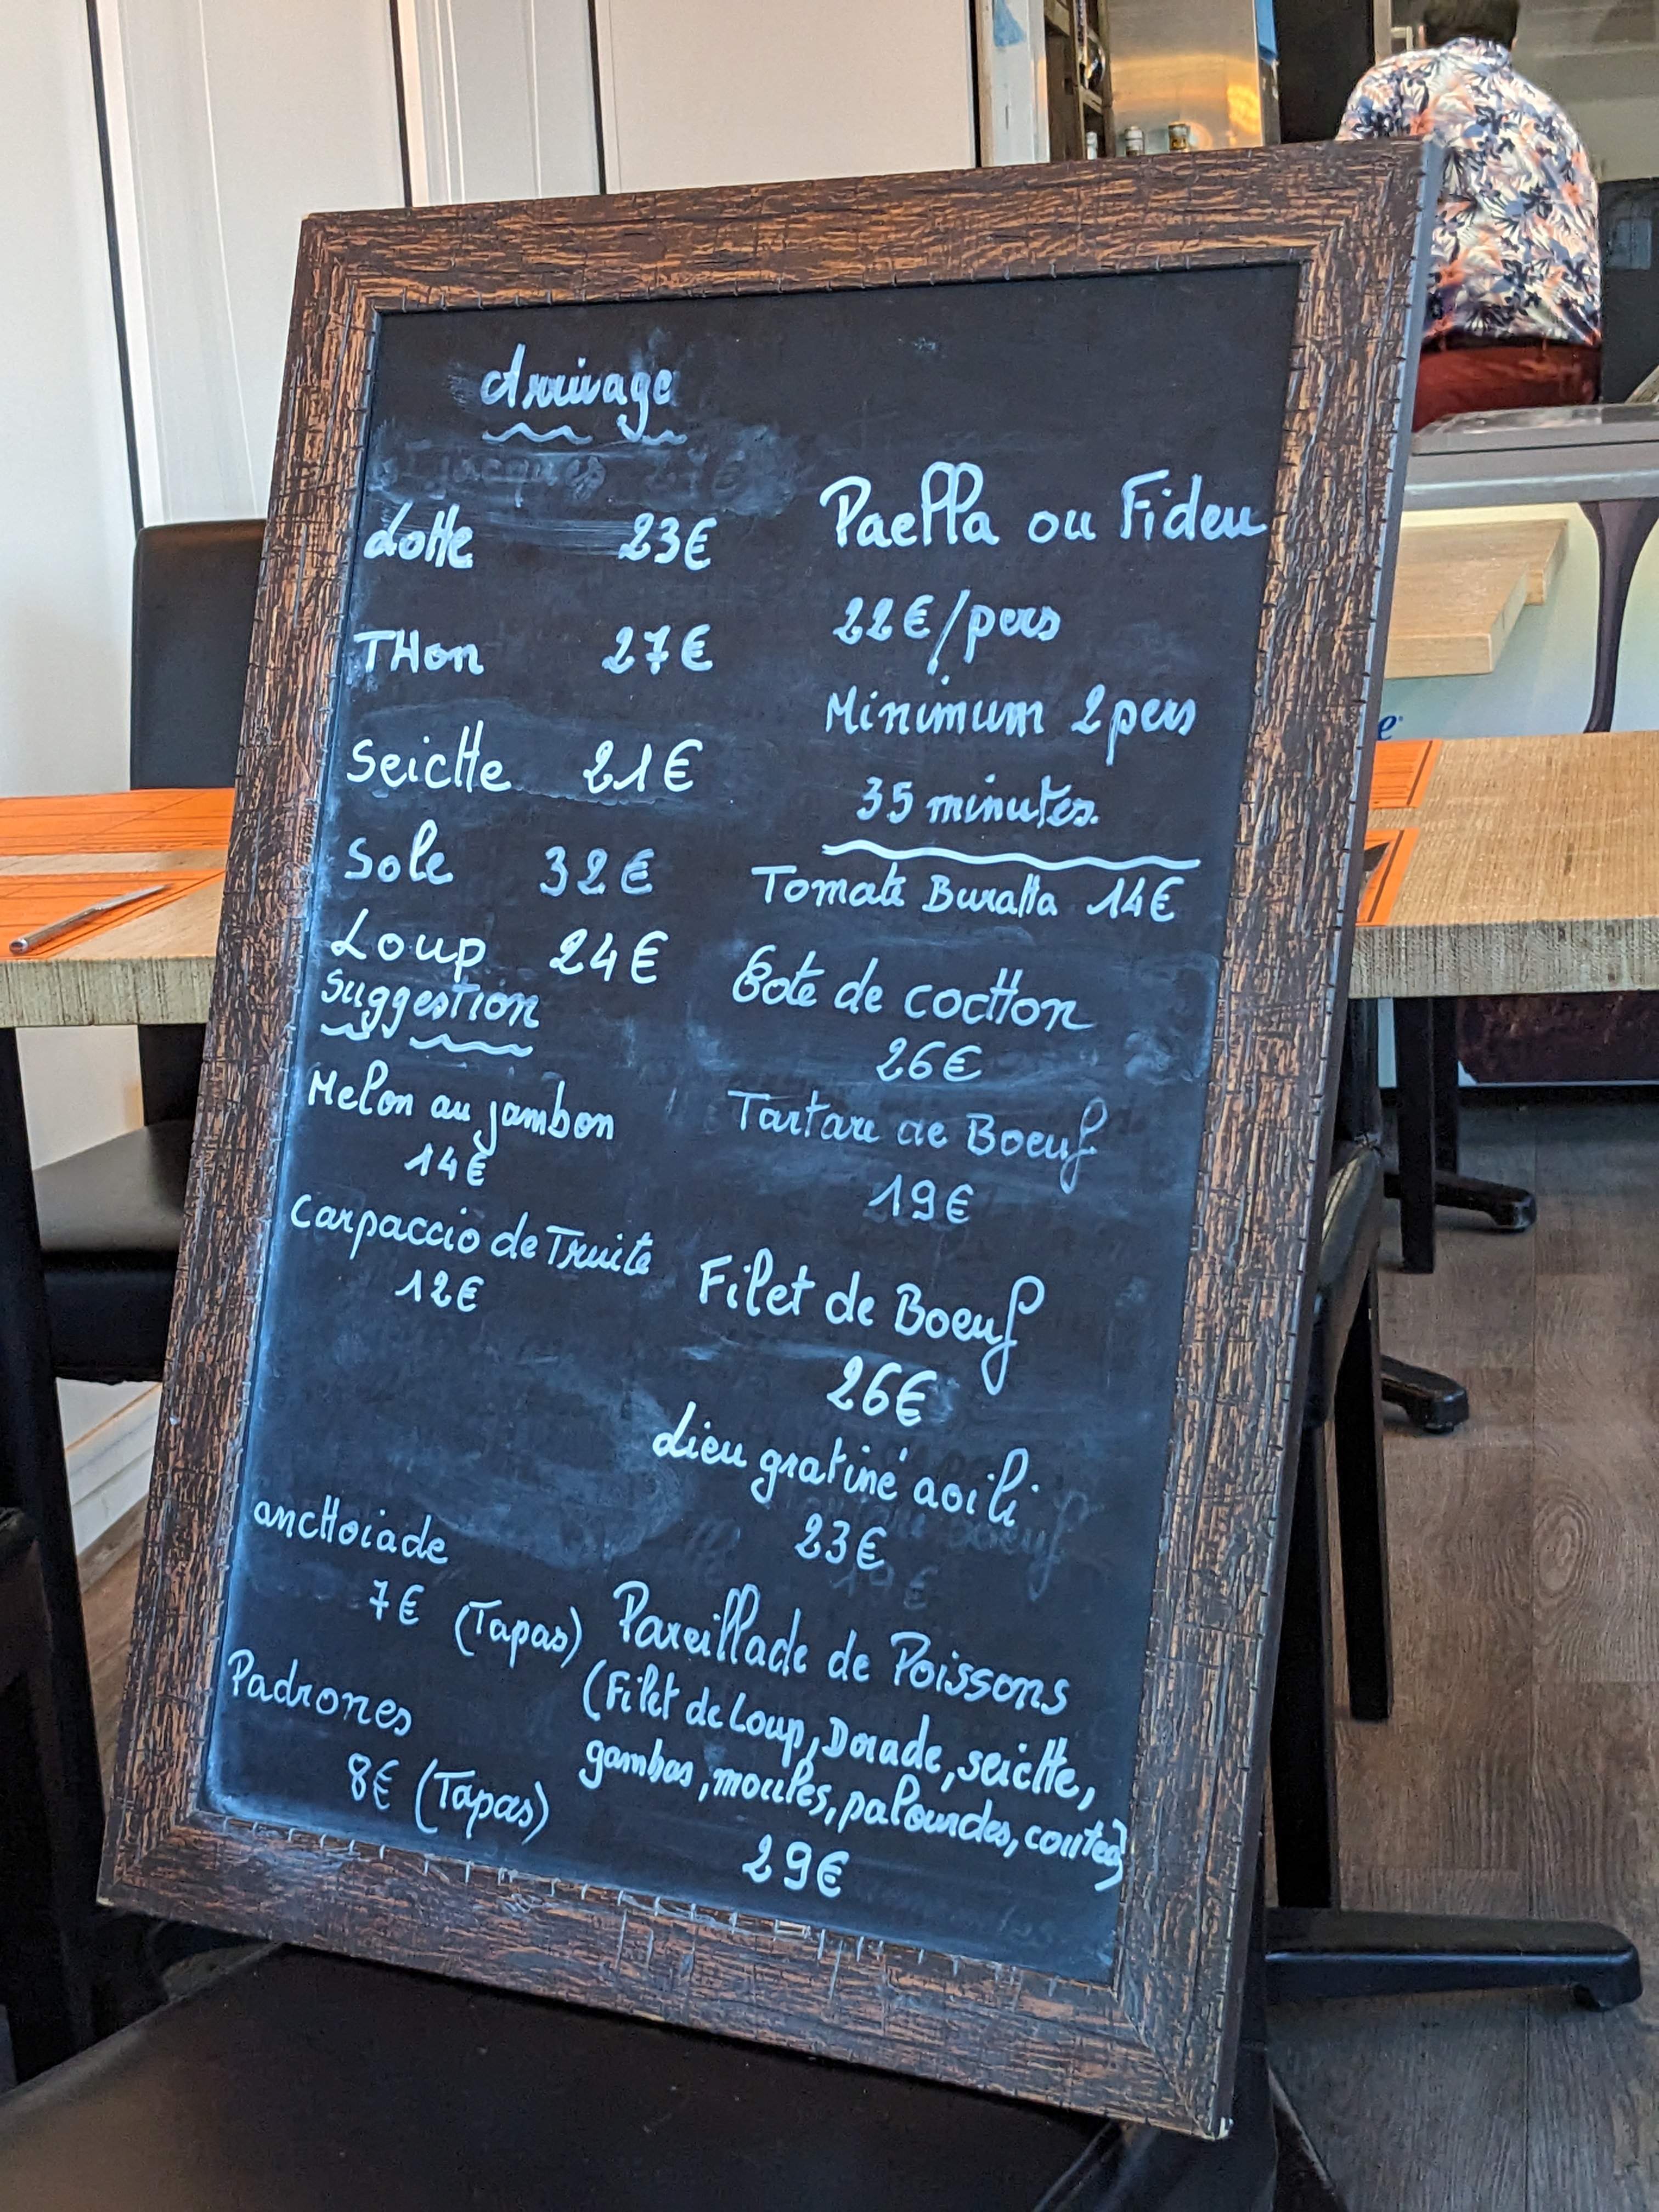 Arrivage
Lotte 23€
THon 27€
SeicHe 21€
Sole 32€
Loup 24€
Suggestion
Melon au jambon
14€
Carpaccio de Truite
12€
ancHoiade
7€ (Tapas)
Padrones
8€ (Tapas)
Paella ou Fideu
22€/pers
Minimum 2pers
35 minutes.
Tomate Buratta 14€
Cote de cocHon
26€
Tartare de Boeuf
19€
Filet de Boeuf
26€
Lieu gratiné aoili
23€
Pareillade de Poissons
(Filet de Loup, Dorade, seicHe,
gambas, moules, palourdes,
29€